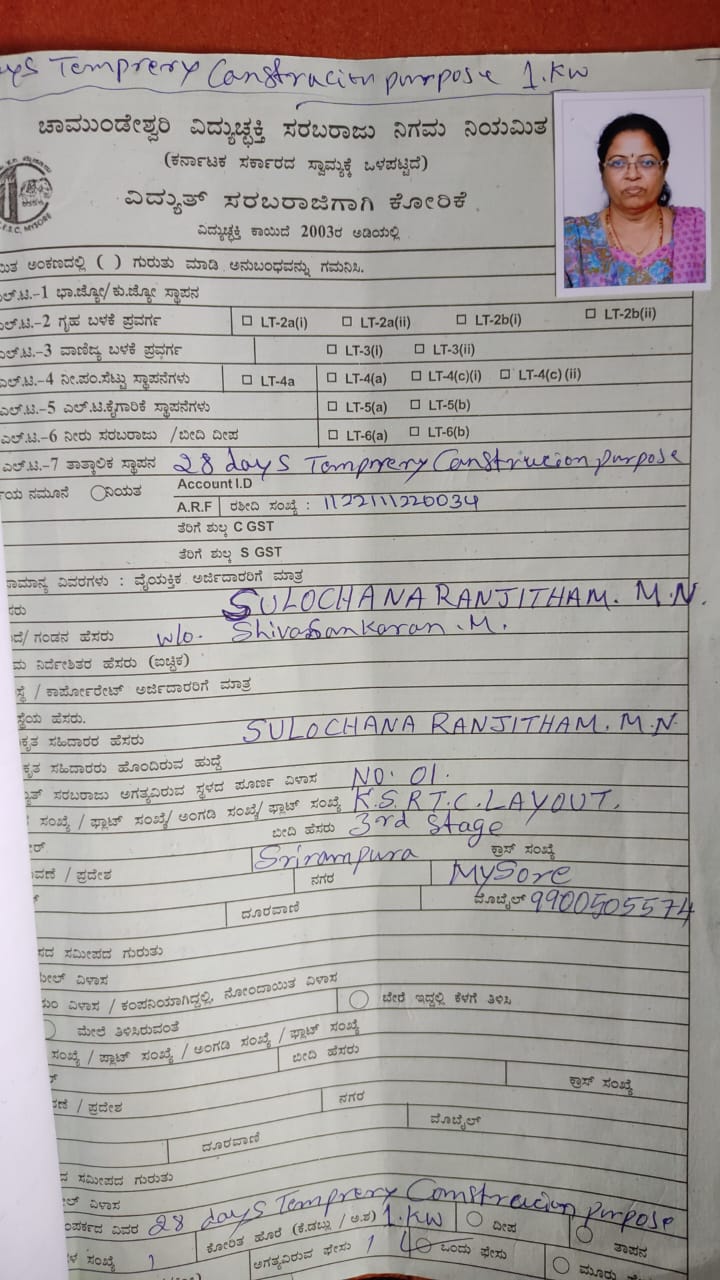 ays Temprery Constracion purpose 1.KW
ಚಾಮುಂಡೇಶ್ವರಿ ವಿದ್ಯುಚ್ಛಕ್ತಿ ಸರಬರಾಜು ನಿಗಮ ನಿಯಮಿತ
(ಕರ್ನಾಟಕ ಸರ್ಕಾರದ ಸ್ವಾಮ್ಯಕ್ಕೆ ಒಳಪಟ್ಟಿದೆ)
ವಿದ್ಯುತ್ ಸರಬರಾಜಿಗಾಗಿ ಕೋರಿಕೆ
ವಿದ್ಯುಚ್ಛಕ್ತಿ ಕಾಯಿದೆ 2003ರ ಅಡಿಯಲ್ಲಿ
ಅಂಕಣದಲ್ಲಿ ( ) ಗುರುತು ಮಾಡಿ ಅನುಬಂಧವನ್ನು ಗಮನಿಸಿ.
ಎಲ್.ಟಿ.-1 ಭಾ.ಜ್ಯೋ/ಕು.ಜ್ಯೋ ಸ್ಥಾಪನ
ಎಲ್.ಟಿ.-2 ಗೃಹ ಬಳಕೆ ಪ್ರವರ್ಗ LT-2a(i) LT-2a(ii) LT-2b(i) LT-2b(ii)
ಎಲ್.ಟಿ.-3 ವಾಣಿಜ್ಯ ಬಳಕೆ ಪ್ರವರ್ಗ LT-3(i) LT-3(ii)
ಎಲ್.ಟಿ.-4 ನೀ.ಪಂ.ಸೆಟ್ಟು ಸ್ಥಾಪನೆಗಳು LT-4a LT-4(a) LT-4(c)(i) LT-4(c) (ii)
ಎಲ್.ಟಿ.-5 ಎಲ್.ಟಿ.ಕೈಗಾರಿಕೆ ಸ್ಥಾಪನೆಗಳು LT-5(a) LT-5(b)
ಎಲ್.ಟಿ.-6 ನೀರು ಸರಬರಾಜು /ಬೀದಿ ದೀಪ LT-6(a) LT-6(b)
ಎಲ್.ಟಿ.-7 ತಾತ್ಕಾಲಿಕ ಸ್ಥಾಪನ 28 days Temprery Construcion purpose
ಯ ನಮೂನೆ ನಿಯತ Account I.D
A.R.F ರಶೀದಿ ಸಂಖ್ಯೆ : 1122111220034
ತೆರಿಗೆ ಶುಲ್ಕ C GST
ತೆರಿಗೆ ಶುಲ್ಕ S GST
ಸಾಮಾನ್ಯ ವಿವರಗಳು : ವೈಯಕ್ತಿಕ ಅರ್ಜಿದಾರರಿಗೆ ಮಾತ್ರ
ಸರು SULOCHANA RANJITHAM. M.N.
ದೆ/ ಗಂಡನ ಹೆಸರು w/o. Shivasankaran .M.
ಮ ನಿರ್ದೇಶಿತರ ಹೆಸರು (ಐಚ್ಛಿಕ)
ಸ್ಥೆ / ಕಾರ್ಪೋರೇಟ್ ಅರ್ಜಿದಾರರಿಗೆ ಮಾತ್ರ
ಸ್ಥೆಯ ಹೆಸರು.
ಕೃತ ಸಹಿದಾರರ ಹೆಸರು SULOCHANA RANJITHAM. M.N.
ಕೃತ ಸಹಿದಾರರು ಹೊಂದಿರುವ ಹುದ್ದೆ
ತ್ ಸರಬರಾಜು ಅಗತ್ಯವಿರುವ ಸ್ಥಳದ ಪೂರ್ಣ ವಿಳಾಸ NO. 01.
ಸಂಖ್ಯೆ / ಪ್ಲಾಟ್ ಸಂಖ್ಯೆ/ ಅಂಗಡಿ ಸಂಖ್ಯೆ/ ಫ್ಲಾಟ್ ಸಂಖ್ಯೆ K.S.R.T.C. LAYOUT.
ಬೀದಿ ಹೆಸರು 3rd Stage
Srirampura ಕ್ರಾಸ್ ಸಂಖ್ಯೆ
ವಣೆ / ಪ್ರದೇಶ ನಗರ MySore
ದೂರವಾಣಿ ಮೊಬೈಲ್ 9900505574
ಸದ ಸಮೀಪದ ಗುರುತು
ಮೇಲ್ ವಿಳಾಸ
ವಿಳಾಸ / ಕಂಪನಿಯಾಗಿದ್ದಲ್ಲಿ, ನೋಂದಾಯಿತ ವಿಳಾಸ ಬೇರೆ ಇದ್ದಲ್ಲಿ ಕೆಳಗೆ ತಿಳಿಸಿ
ಮೇಲೆ ತಿಳಿಸಿರುವಂತೆ
ಸಂಖ್ಯೆ / ಪ್ಲಾಟ್ ಸಂಖ್ಯೆ / ಅಂಗಡಿ ಸಂಖ್ಯೆ / ಫ್ಲಾಟ್ ಸಂಖ್ಯೆ
ಬೀದಿ ಹೆಸರು
ಕ್ರಾಸ್ ಸಂಖ್ಯೆ
ವಣೆ / ಪ್ರದೇಶ ನಗರ
ದೂರವಾಣಿ ಮೊಬೈಲ್
ದ ಸಮೀಪದ ಗುರುತು
ಲ್ ವಿಳಾಸ
ಂಪರ್ಕದ ವಿವರ 28 days Temprery Constracion purpose
ಳ ಸಂಖ್ಯೆ 1 ಕೋರಿತ ಹೊರೆ (ಕೆ.ಡಬ್ಲು / ಅ.ಶ) 1.KW ದೀಪ ತಾಪನ
ಅಗತ್ಯವಿರುವ ಫೇಸು 1 ಒಂದು ಫೇಸು ಮೂರು